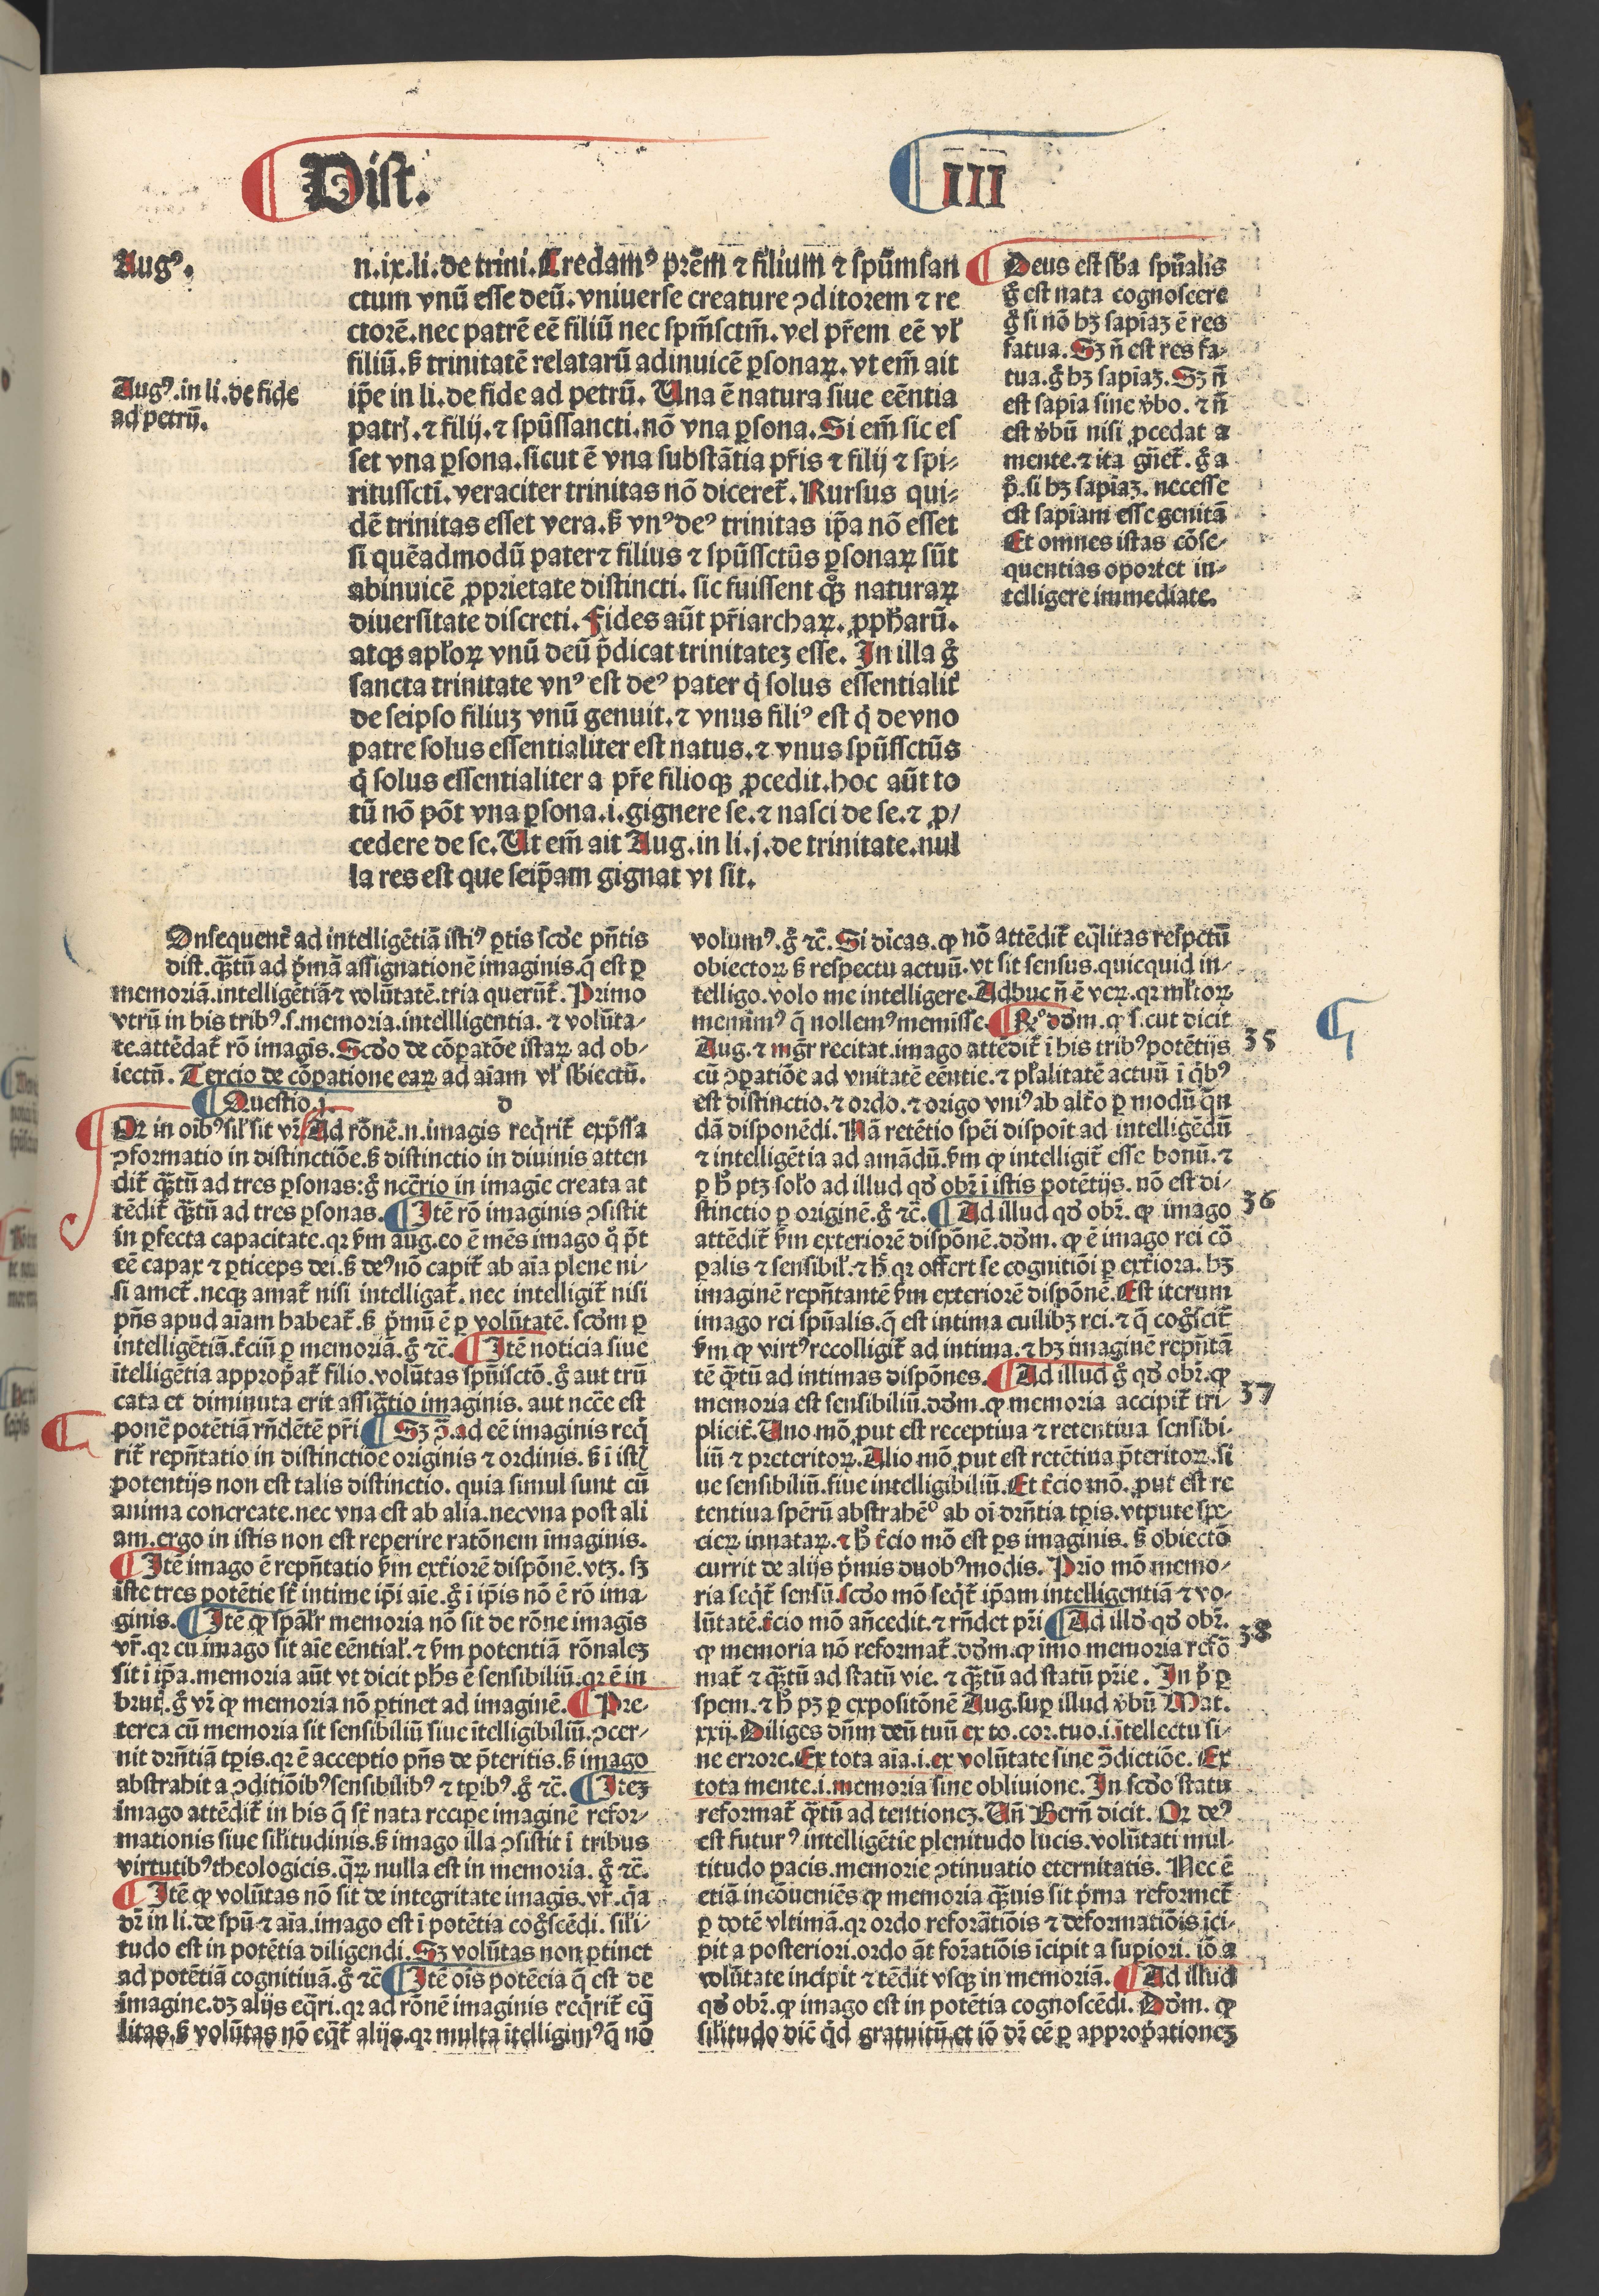 Dist. III
Augꝰ.
n.ix.li.de trini. Credamꝰ prēm ⁊ filium ⁊ spūmsan
ctum vnū esse deū.vniuerse creature ꝯditorem ⁊ re
ctorē.nec patrē eē filiū nec spm̄sctm̄.vel pr̄em eē vl̓
filiū.ß trinitatē relatarū adinuicē ꝑsonaꝝ.vt em̄ ait
Augꝰ.in li.de fide
ad petrū.
ip̄e in li.de fide ad petrū. Una ē natura siue eēntia
patrꝭ.⁊ filij.⁊ spūssancti.nō vna ꝑsona.Si em̄ sic es
set vna ꝑsona.sicut ē vna substātia pr̄is ⁊ filij ⁊ spi-
ritusscti.veraciter trinitas nō diceret̄. Rursus qui-
dē trinitas esset vera.ß vnꝰdeꝰ trinitas ip̄a nō esset
si quēadmodū pater⁊ filius ⁊ spūssctūs ꝑsonaꝝ sūt
abinuicē ꝓprietate distincti. sic fuissent qͦꝫ naturaꝝ
diuersitate discreti. Fides aūt pr̄iarchaꝝ. ꝓpharū.
atqꝫ apl̓oꝝ vnū deū p̄dicat trinitateꝫ esse. In illa gͦ
sancta trinitate vnꝰ est deꝰ pater q̇ solus essentialit̄
de seipso filiuꝫ vnū genuit.⁊ vnus filiꝰ est q̇ de vno
patre solus essentialiter est natus.⁊ vnus spūssctūs
q̇ solus essentialiter a pr̄e filioqꝫ ꝓcedit.hoc aūt to
tū nō pōt vna ꝑsona.i.gignere se.⁊ nasci de se.⁊ ꝓ/
cedere de se. Ut em̄ ait Aug.in li.j.de trinitate.nul
la res est que seip̄am gignat vt sit.
Deus est sb̄a spūalis
gͦ est nata cognoscere
gͦ si nō hꝫ sapiāꝫ ē res
fatua. Sꝫ n̄ est res fa-
tua.gͦ hꝫ sapiāꝫ. Sꝫ n̄
est sapīa sine v̓bo. ⁊ n̄
est v̓bū nisi ꝓcedat a
mente.⁊ ita gn̄et̄. gͦ a
pͦ.si hꝫ sapiāꝫ. necesse
est sapiam esse genitā
Et omnes istas cōse-
quentias oportet in-
telligere immediate.
Onsequent̄ ad intelligētiā istiꝰ ꝑtis scd̓e pn̄tis
dist.qꝫtū ad p̓mā assignationē imaginis.q̄ est ꝑ
memoriā.intelligētiā⁊ volūtatē.tria querūt̄. Primo
vtrū in his tribꝰ.s.memoria.intellligentia. ⁊ volūta-
te.attēdat̄ rō imagīs. Scd̓o de cōꝑatōe istaꝝ ad ob-
iectū. Tercio de cōꝑatione eaꝝ ad aīam vl̓ sb̄iectū.
Questio.j. d
Or in oībꝰ sil̓ sit vr̄. Ad rōnē.n.imagis req̇rit̄ exp̄ssa
ꝯformatio in distinctiōe.ß distinctio in diuinis atten
dit̄ qꝫtū ad tres ꝑsonas:gͦ nccr̄io in imagīe creata at
tēdit̄ qꝫtū ad tres ꝑsonas. Itē rō imaginis ꝯsistit
in ꝑfecta capacitate.qꝛ ẜm aug.eo ē mēs imago qͦ p̄t
eē capax ⁊ ꝑticeps dei.ß deꝰ nō capit̄ ab aīa plene ni-
si amet̄.neqꝫ amat̄ nisi intelligat̄.nec intelligit̄ nisi
pn̄s apud aīam habeat̄.ß p̓mū ē ꝑ volūtatē.scd̓m ꝑ
intelligētiā.t̓ciū ꝑ memoriā.gͦ ⁊c̄. Itē noticia siue
ītelligētia approp̓at̄ filio.volūtas spūisctō.gͦ aut trū
cata et diminuta erit assig̓tio imaginis. aut ncc̄e est
ponē potētiā rn̄dētē pr̄i Sꝫ ꝯͣ.ad eē imaginis req̇
rit̄ repn̄tatio in distinctiōe originis ⁊ ordinis.ß i istꝭ
potentijs non est talis distinctio. quia simul sunt cū
anima concreate.nec vna est ab alia.necvna post ali
am.ergo in istis non est reperire ratōnem imaginis.
Itē imago ē repn̄tatio ẜm ext̓iorē dispōnē.vtꝫ. sꝫ
iste tres potētie st̄ intime ip̄i aīe.gͦ i ip̄is nō ē rō ima-
ginis. Itē ꝙ sp̄al̓r memoria nō sit de rōne imagīs
vr̄.qꝛ cū imago sit aīe eēntial̓.⁊ ẜm potentiā rōnaleꝫ
sit i ip̄a.memoria aūt vt dicit ph̄s ē sensibiliū.qꝛ ē in
brutꝭ.gͦ vr̄ ꝙ memoria nō ꝑtinet ad imaginē. Pre-
terea cū memoria sit sensibiliū siue ītelligibiliū.ꝯcer-
nit dr̄ntiā tp̄is.qꝛ ē acceptio pn̄s de p̄teritis.ß imago
abstrahit a ꝯditiōibꝰ sensibilibꝰ ⁊ tp̄ibꝰ.gͦ ⁊c̄. Iteꝫ
imago attēdit̄ in his q̄ st̄ nata recipe imaginē refor-
mationis siue sil̓itudinis.ß imago illa ꝯsistit i tribus
virtutibꝰ theologicis.qꝝ nulla est in memoria. gͦ ⁊c̄.
Itē ꝙ volūtas nō sit de integritate imagīs.vr̄. q̄a
dr̄ in li.de spū ⁊ aīa.imago est i potētia cog̓scēdi. sili-
tudo est in potētia diligendi. Sꝫ volūtas non ꝑtinet
ad potētiā cognitiuā.gͦ ⁊c̄ Itē oīs potēcia q̄ est de
imagine.dꝫ alijs eq̄ri.qꝛ ad rōnē imaginis req̇rit̄ eq̄
litas.ß volūtas nō eq̄t̄ alijs.qꝛ multa ītelligimꝰ q̄ nō
volumꝰ.gͦ ⁊c̄. Si dicas.ꝙ nō attēdit̄ eq̄litas respectū
obiectoꝝ ß respectu actuū.vt sit sensus.quicquid in-
telligo.volo me intelligere. Adhuc n̄ ē veꝝ.qꝛ ml̓toꝝ
meminimꝰ q̄ nollemꝰ memisse. Rͦ. dd̓m.ꝙ s.cut dicit
Aug.⁊ mgr̄ recitat.imago attēdit̄ i his tribꝰ potētijs 35
cū ꝯꝑatiōe ad vnitatē eēntie.⁊ pl̓alitatē actuū i q̇bꝰ
est distinctio.⁊ ordo.⁊ origo vniꝰ ab alt̓o ꝑ modū q̄n
dā disponēdi. Nā retētio spēi dispoīt ad intelligēdū
⁊ intelligētia ad amādū.ẜm ꝙ intelligit̄ esse bonū.⁊
ꝑ hͦ ptꝫ sol̓o ad illud qd̓ obr̄.i istis potētijs. nō est di-
stinctio ꝑ originē.gͦ ⁊c̄. Ad illud qd̓ obr̄. ꝙ imago 36
attēdit̄ ẜm exteriorē dispōnē.dd̓m. ꝙ ē imago rei cō
ꝑalis ⁊ sensibil̓.⁊ hͨ qꝛ offert se cognitiōi ꝑ ext̓iora. hꝫ
imaginē repn̄tantē ẜm exteriorē dispōnē. Est iterum
imago rei spūalis.q̄ est intima cuilibꝫ rei.⁊ q̄ cog̓scit̄
ẜm ꝙ virtꝰ recolligit̄ ad intima.⁊ hꝫ imaginē repn̄tā
tē qꝫtū ad intimas dispōnes. Ad illud gͦ qd̓ obr̄.ꝙ 37
memoria est sensibiliū.dd̓m.ꝙ memoria accipit̄ tri-
plicit̄. Uno mō ꝓut est receptiua ⁊ retentiua sensibi-
liū ⁊ preteritoꝝ. Alio mō ꝓut est retētiua p̄teritoꝝ. si
ue sensibiliū.siue intelligibiliū. Et t̓cio mō. ꝓut est re
tentiua spērū abstrahēdͦ ab oī dr̄ntia tp̄is.vtpute spe-
cieꝝ innataꝝ. ⁊ hͨ t̓cio mō est ꝑs imaginis. ß obiectō
currit de alijs p̓mis duobꝰ modis. Prīo mō memo-
ria seq̇t̄ sensū.scd̓o mō seq̇t̄ ip̄am intelligentiā ⁊ vo-
lūtatē.t̓cio mō an̄cedit.⁊ rn̄det pr̄i Ad illd̓ qd̓ obr̄. 38
ꝙ memoria nō reformat̄.dd̓m.ꝙ imo memoria refō
mat̄ ⁊ qꝫtū ad statū vie. ⁊ qꝫtū ad statū pr̄ie. In pͦ ꝑ
spem.⁊ hͨ pꝫ ꝑ expositōnē Aug.suꝑ illud v̓bū Mat.
xxij. Diliges dn̄m deū tuū ex to.cor.tuo.i.ītellectu si-
ne errore. Ex tota aīa.i.ex volūtate sine ꝯͣdictiōe. Ex
tota mente.i.memoria sine obliuione. In scd̓o statu
reformat̄ qꝫtū ad tentioneꝫ. Un̄ Bern̄ dicit. Or deꝰ
est futurꝰ intelligētie plenitudo lucis.volūtati mul-
titudo pacis.memorie ꝯtinuatio eternitatis. Nec ē
etiā incōueniēs ꝙ memoria qꝫuis sit p̓ma reformet̄
ꝑ dotē vltimā.qꝛ ordo reforātiōis ⁊ deformatiōis ici-
pit a posteriori.ordo āt forātiōis īcipit a supiori. iō a
volūtate incipit ⁊ tēdit vsqꝫ in memoriā. Ad illud
qd̓ obr̄.ꝙ imago est in potētia cognoscēdi. Dd̓m. ꝙ
sil̓itudo dic̄ q̇d gratuitū.et iō dr̄ eē ꝑ approp̓ationeꝫ